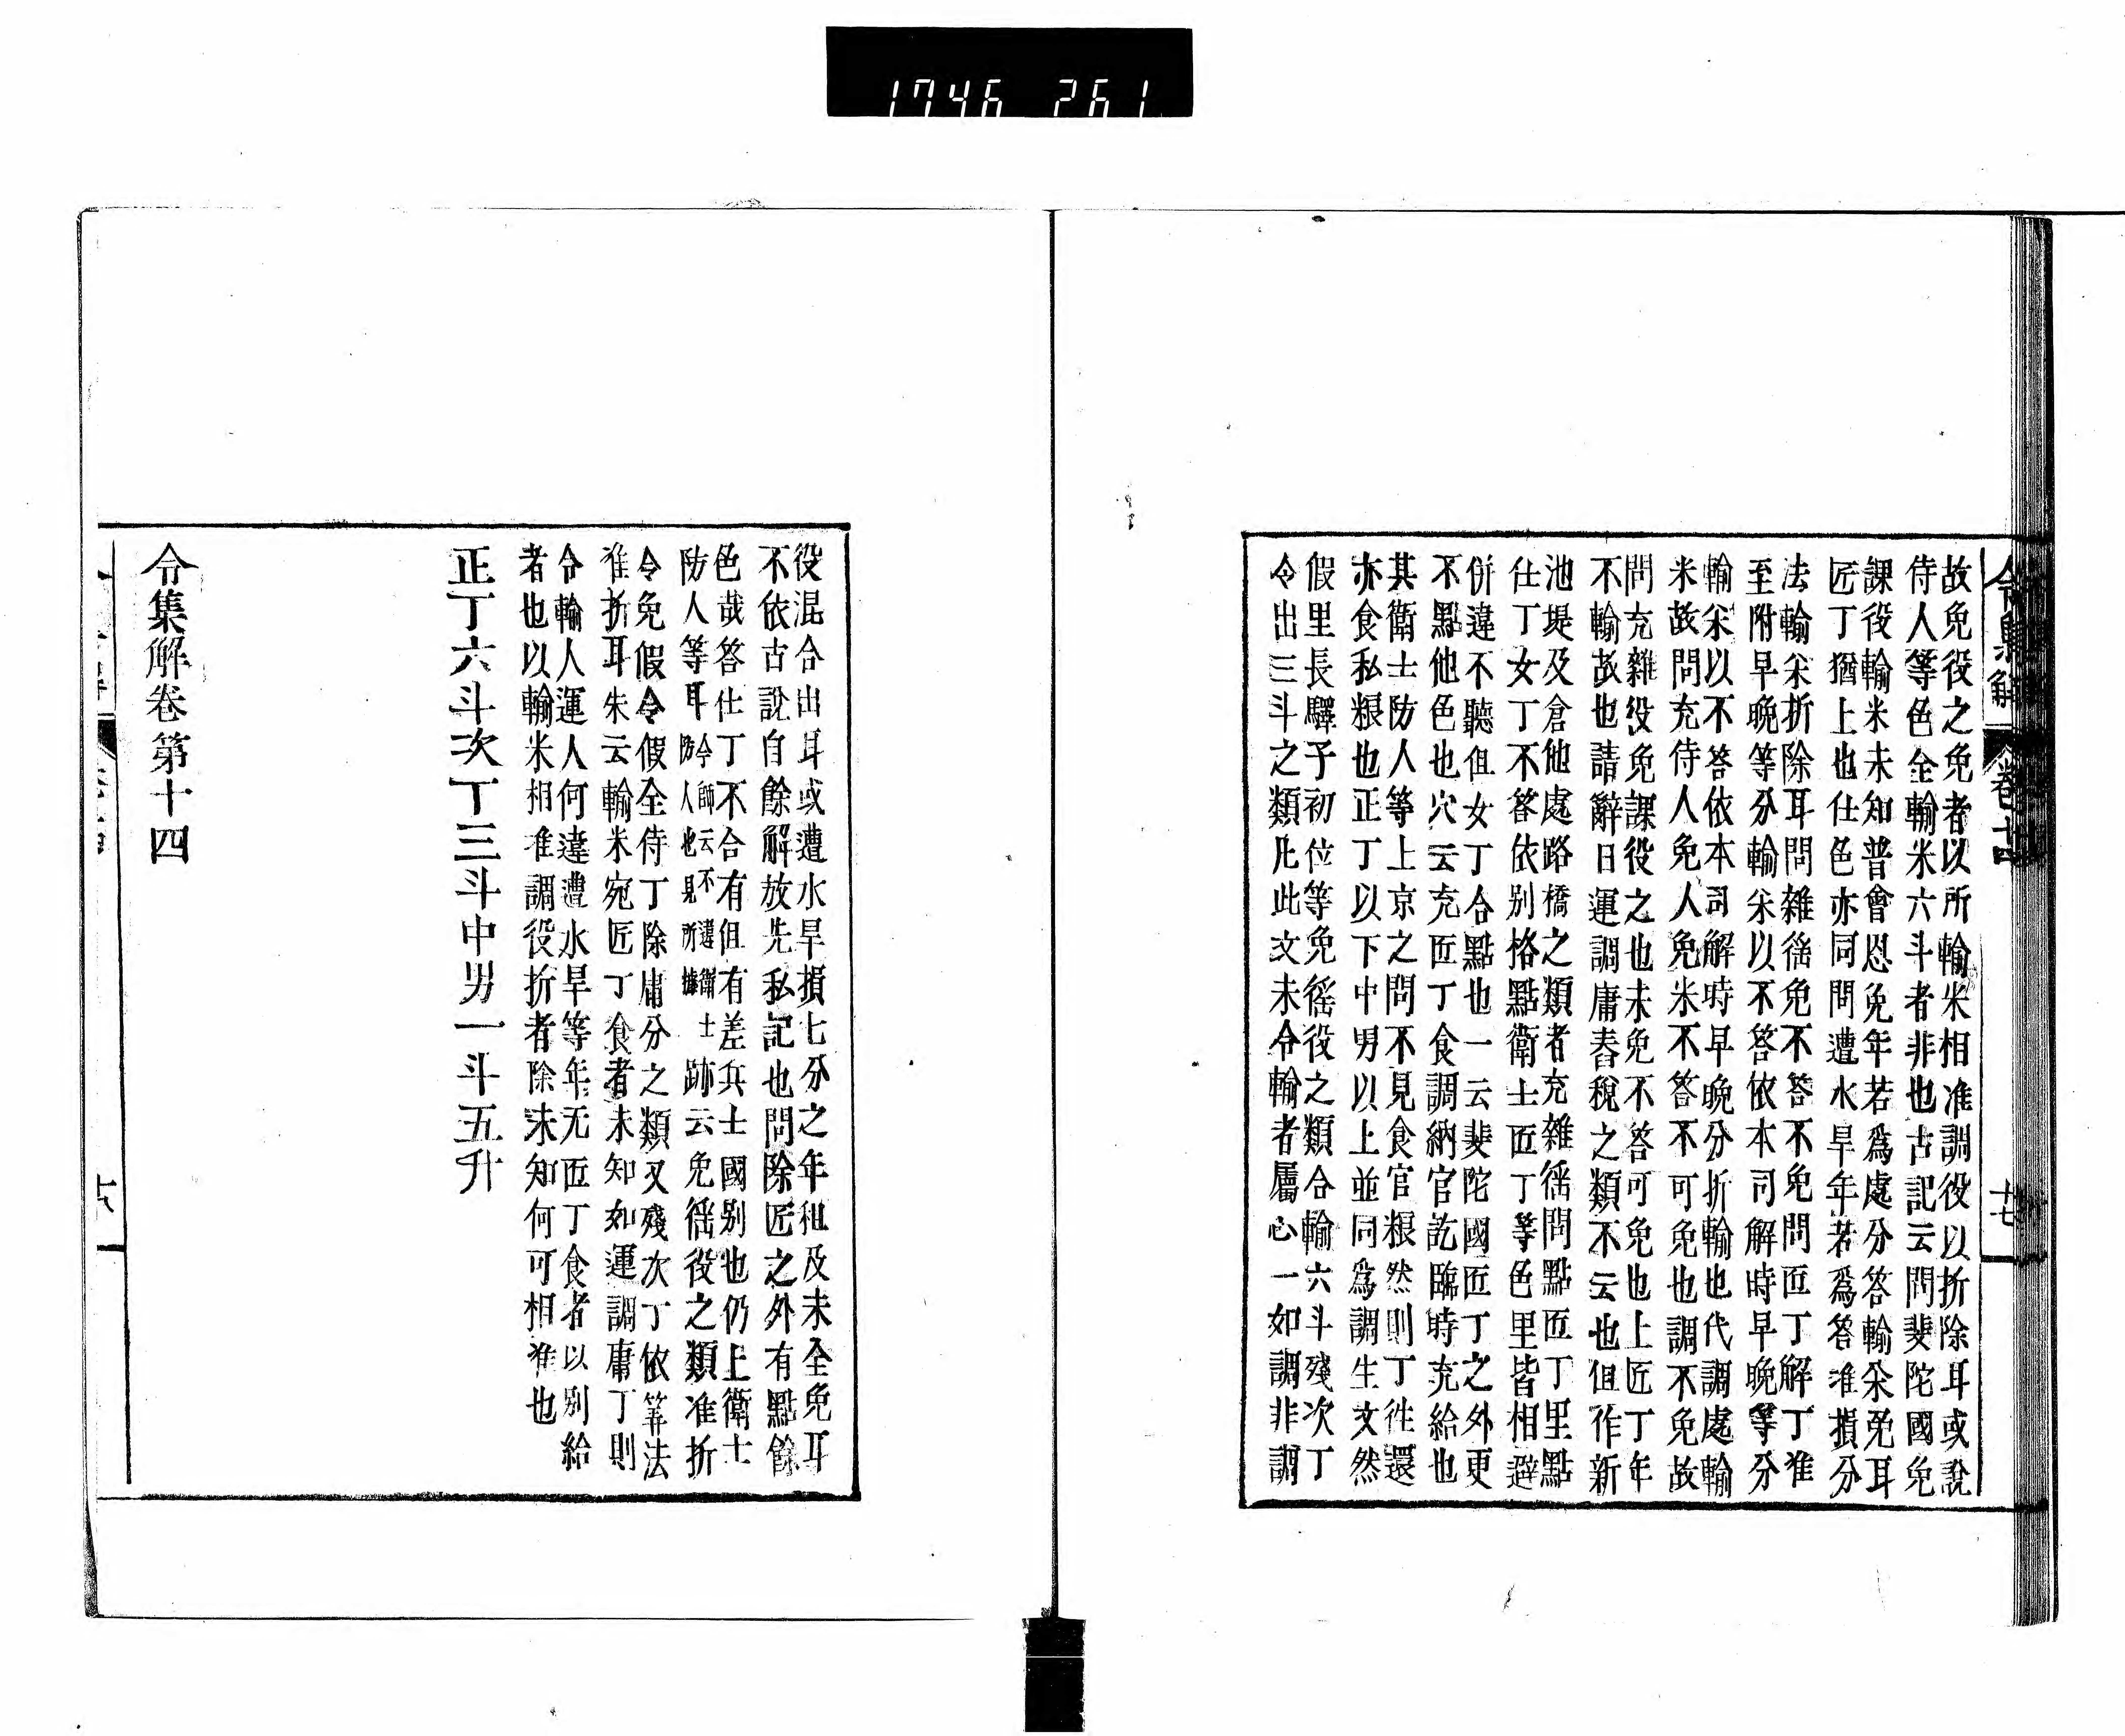 1746 261
令集解 卷十四 十七
故免役之免者以所輸米相准調役以折除耳或說
侍人等色全輸米六斗者非也古記云問斐陀國免
課役輸米未知普會恩免年若爲處分答輸米免耳
匠丁猶上也仕色亦同問遭水旱年若爲答准損分
法輸米折除耳問雜徭免不答不免問匠丁解丁准
至附早晚等分輸米以不答依本司解時早晚等分
輸米以不答依本司解時早晚分折輸也代調處輸
米故問充侍人免人免米不答不可免也調不免故
問充雜役免課役之也未免不答可免也上匠丁年
不輸故也請辭日運調庸舂稅之類不云也但作新
池堤及倉他處路橋之類者充雜徭問點匠丁里點
仕丁女丁不答依別格點衛士匠丁等色里皆相避
併違不聽但女丁合點也一云斐陀國匠丁之外更
不點他色也穴云充匠丁食調納官訖臨時充給也
其衛士防人等上京之問不見食官粮然則丁徃還
亦食私粮也正丁以下中男以上並同爲調生文然
假里長驛子初位等免徭役之類合輸六斗殘次丁
令出三斗之類凡此文未令輸者屬心一如調非調
役混合出耳或遭水旱損七分之年租及未全免耳
不依古說自餘解放先私記也問除匠之外有點餘
色哉答仕丁不合有但有差兵士國别也仍上衛士
防人等耳今師云不違衛士防人也見所據跡云免徭役之類准折
令免假令假全侍丁除庸分之類又殘次丁依筭法
准折耳朱云輸米宛匠丁食者未知如運調庸丁則
令輸人運人何違遭水旱等年无匠丁食者以别給
者也以輸米相准調役折者除未知何可相准也
正丁六斗次丁三斗中男一斗五升
令集解卷第十四